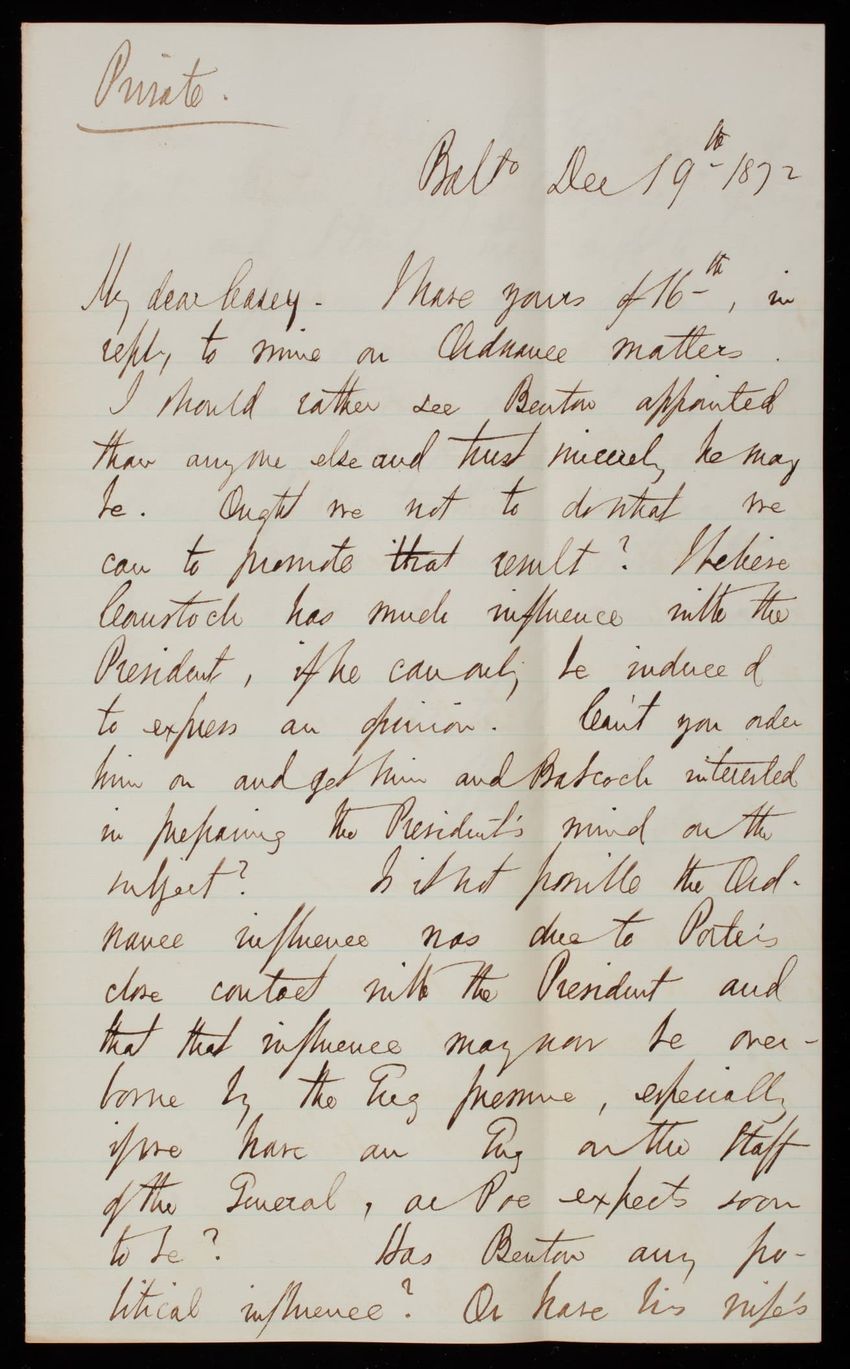 Private.
Balto Dec 19th 1872
My dear Casey - I have yours of 16th, in
reply to mine on Ordnance matters.
I should rather see Benton appointed
than any one else and trust sincerely he may
be. Ought we not to do what we
can to promote that result? I believe
Comstock has much influence with the
President, if he can only be induced
to express an opinion. Can't you order
him on and get him and Babcock interested
in preparing the President's mind on the
subject? Is it not possible the Ord-
nance influence was due to Porter's
close contact with the President and
that that influence may now be over-
borne by the Eng pressure, especially
if we have an Eng on the Staff
of the General, as Poe expects soon
to be? Has Benton any po-
litical influence? Or have his wife's